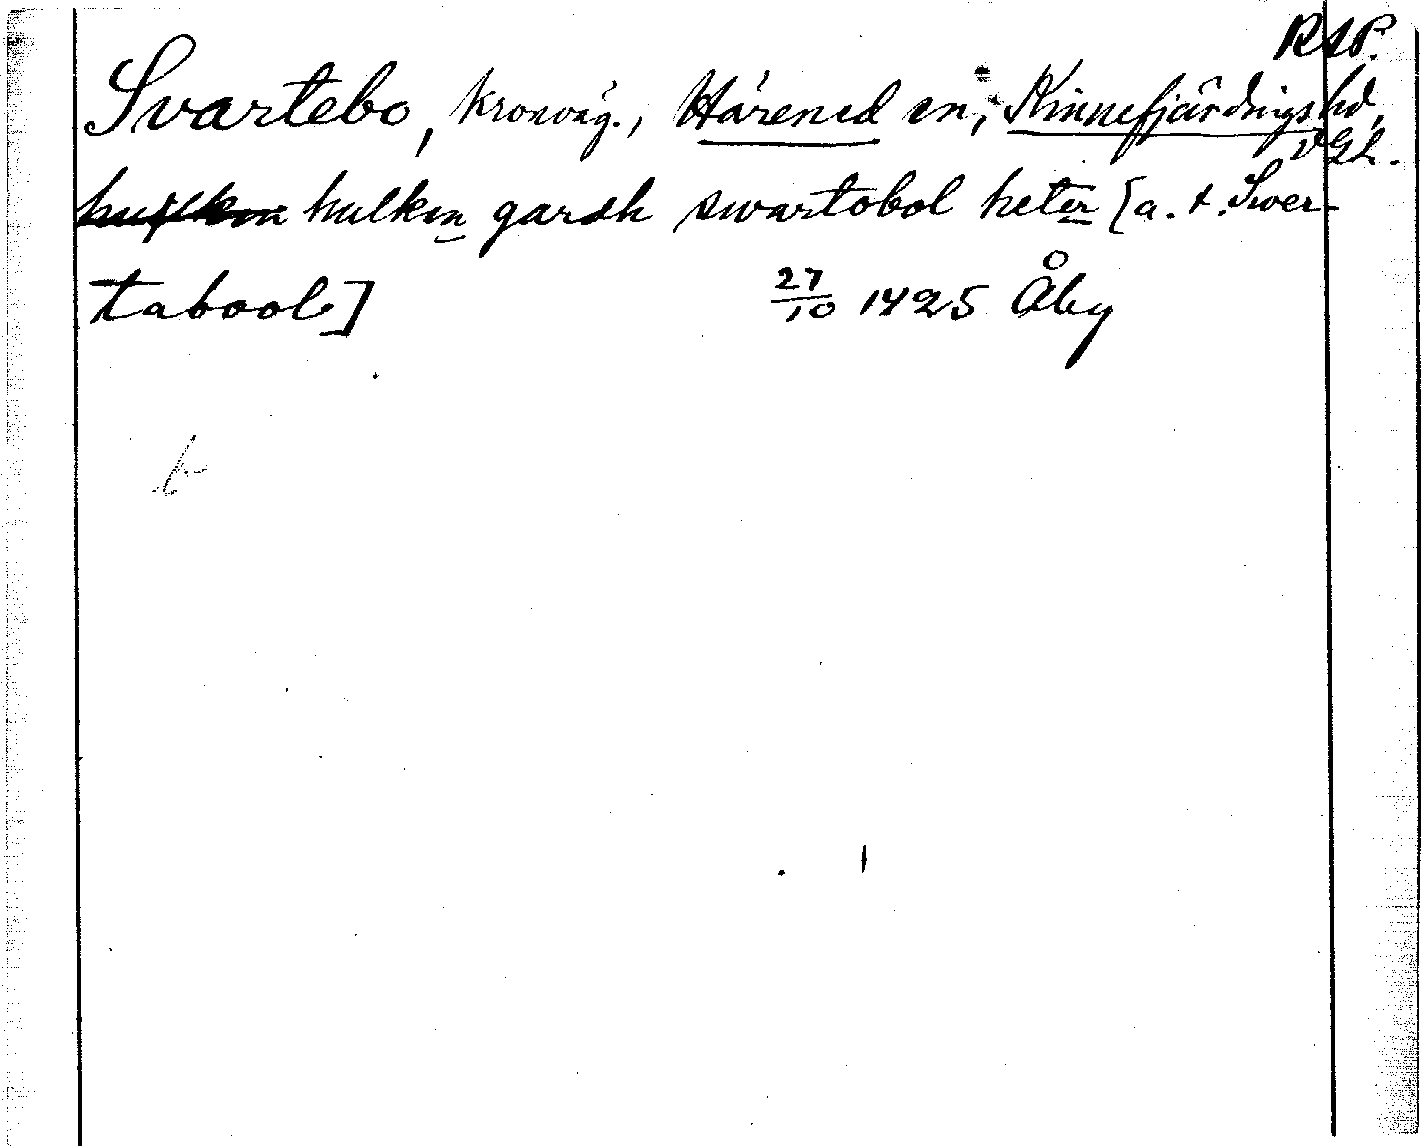 RAP.
Svartebo, kronoäg., Härened sn, Kinnefjärdings hd,
VGL.
hulken gardh swartobol heter [a. t. Swer-
taboole]
27/10 1425 Åby